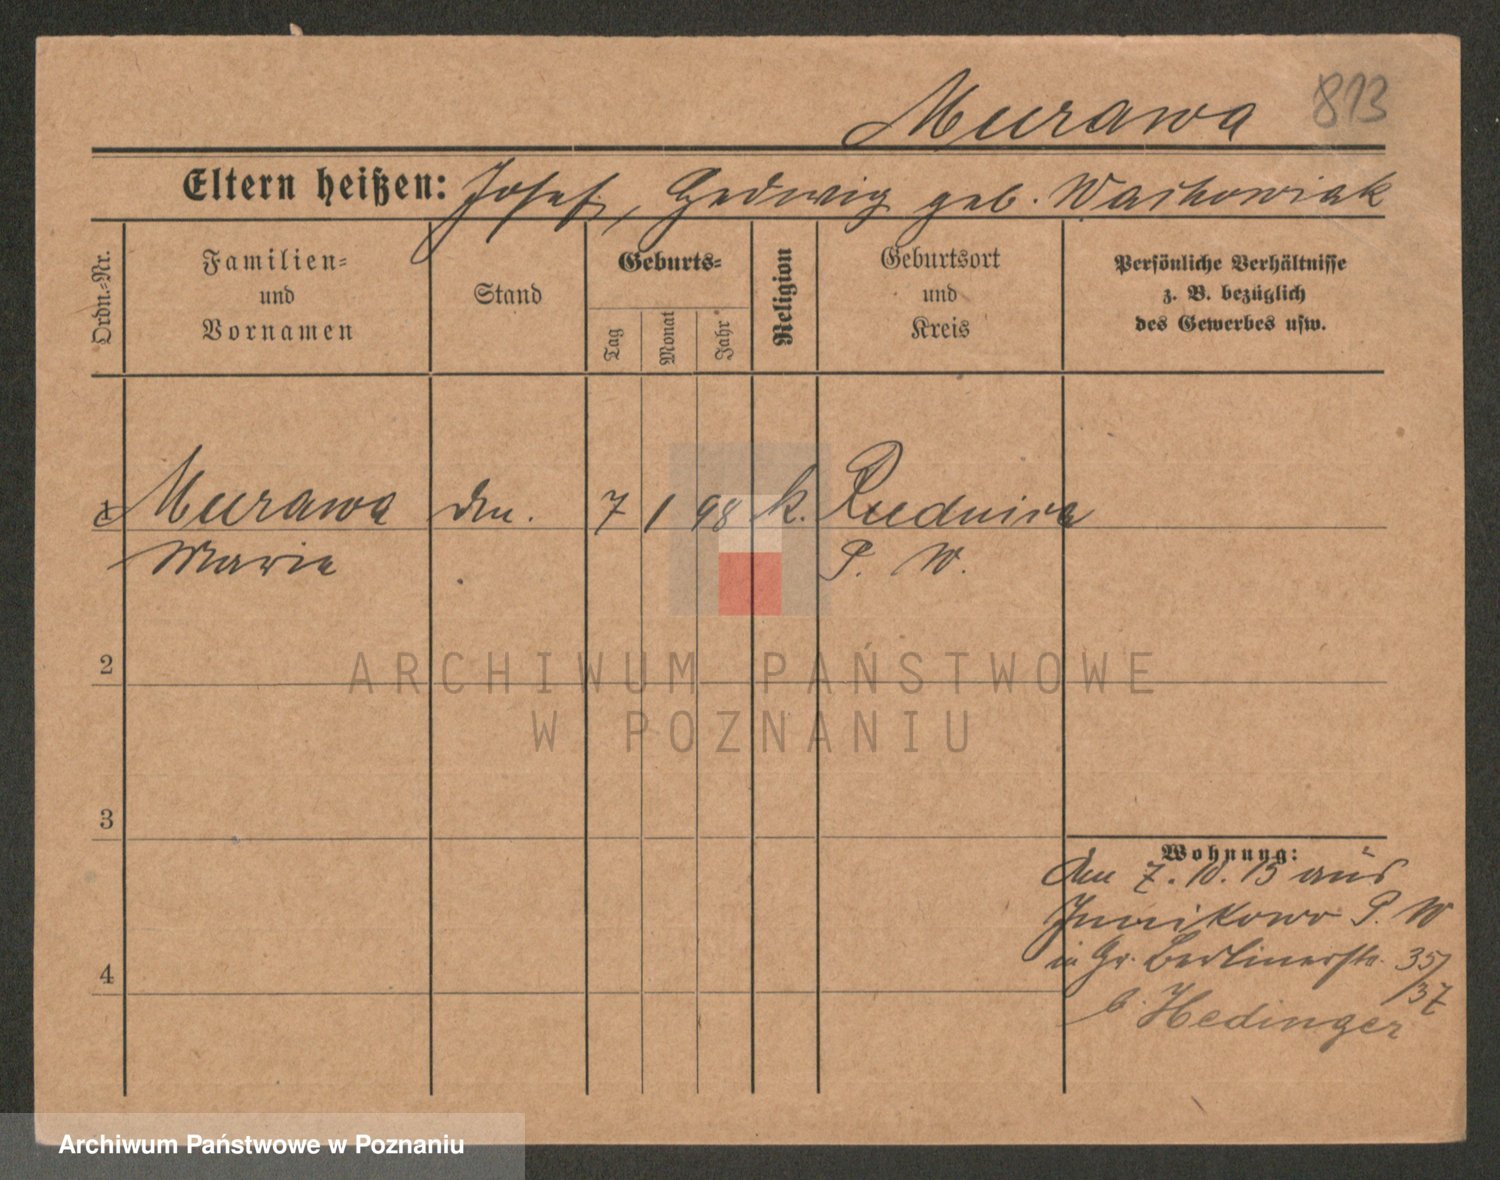 Murawa 813
Eltern heißen: Josef, Hedwig geb. Waskowiak
Ordn.-Nr.
Familien-
und
Vornamen
Stand
Geburts-
Tag
Monat
Jahr
Religion
Geburtsort
und
Kreis
Persönliche Verhältnisse
z. B. bezüglich
des Gewerbes usw.
1 Murawa 7 1 98 k. Rudnicze
Marie P. W.
2
3
4
Wohnung:
den 7. 10. 15 aus
Junikowo P. W
in Gr. Berlinerstr. 35/
37
b. Hedinger
ARCHIWUM PAŃSTWOWE
W POZNANIU
Archiwum Państwowe w Poznaniu